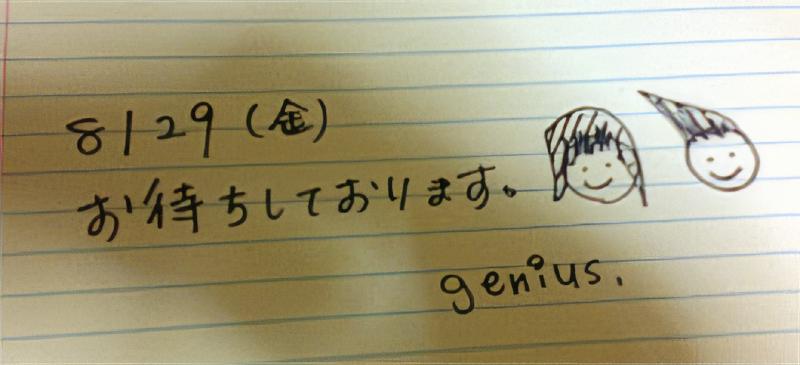 8/29(金)
お待ちしております。
genius.